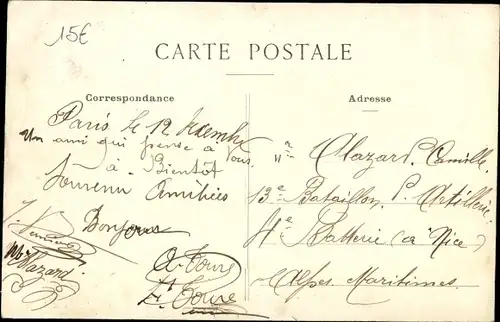 15€
CARTE POSTALE
Correspondance
Adresse
Paris le 12
Un ami qui pense à vous
à Bientôt
Souvenir Amitiées
Bonjour
Mr Alazard Camille
13e Bataillon Artillerie
4e Batterie (à Nice)
Alpes Maritimes